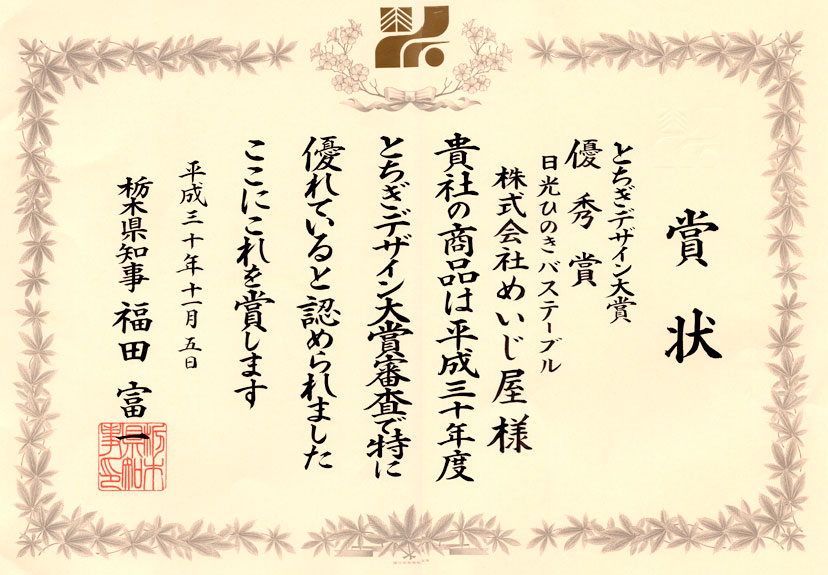 賞状
とちぎデザイン大賞
優秀賞
日光ひのきバステーブル
株式会社めいじ屋様
貴社の商品は平成三十年度
とちぎデザイン大賞審査で特に
優れていると認められました
ここにこれを賞します
平成三十年十一月五日
栃木県知事 福田富一